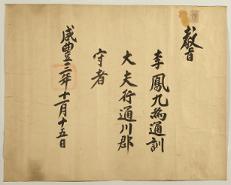 教旨
李鳳九爲通訓
大夫行通川郡
守者
咸豐三年十二月十五日